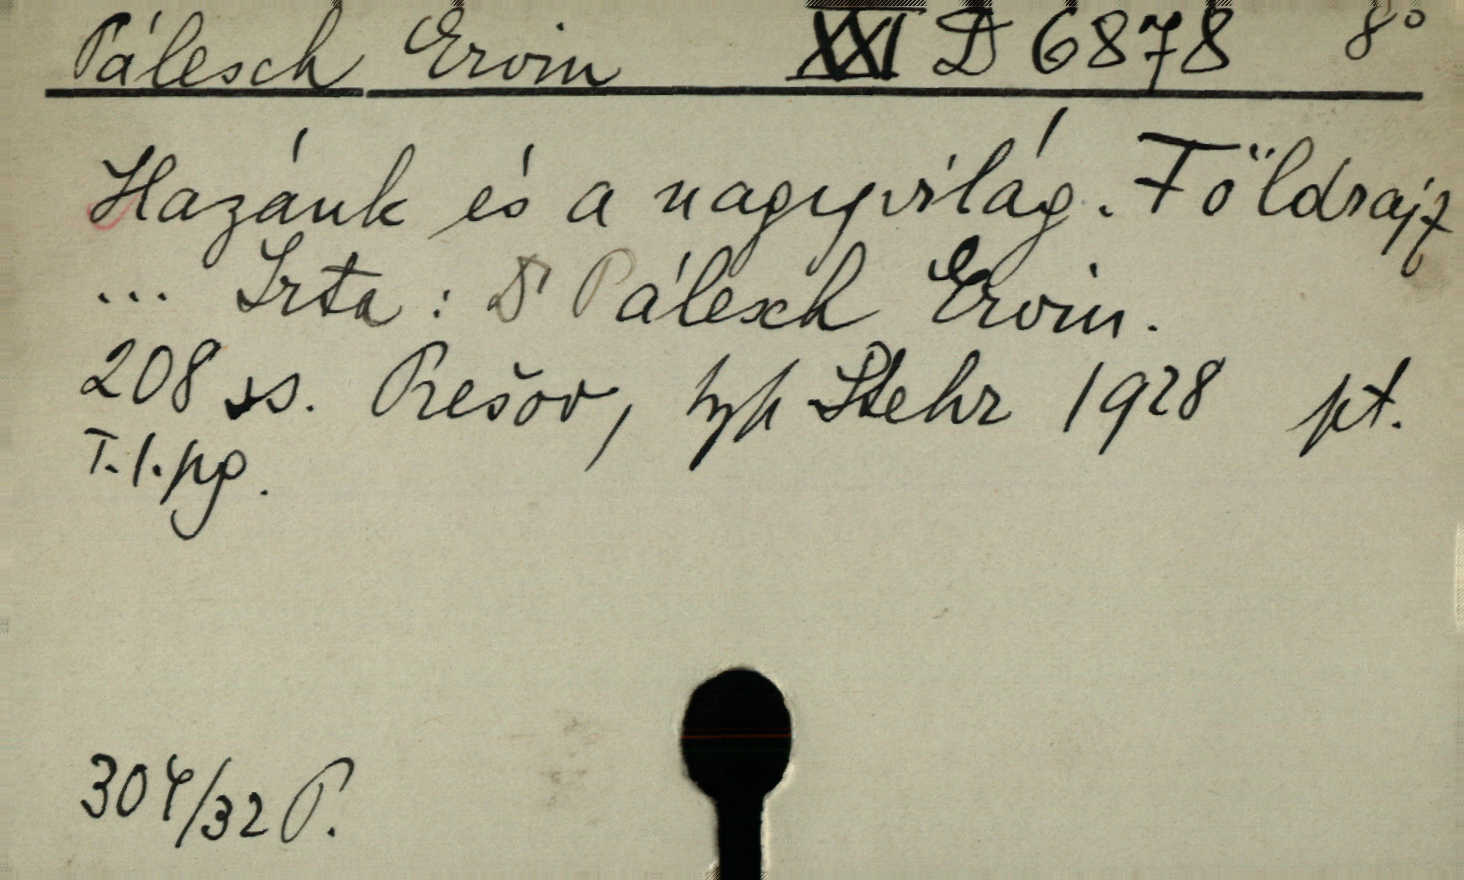 Pálesch Ervin XXI D 6878 8°
Hazánk és a nagyvilág. Földrajz
... Irta: Dr Pálesch Ervin.
208 ss. Prešov, typ Stehr 1928 pt.
T.1.pg.
304/32 P.